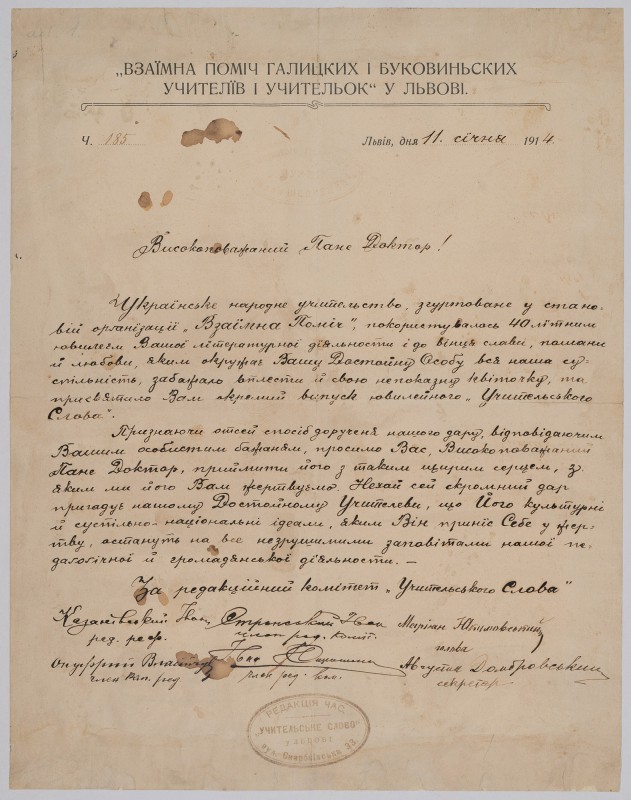 „ВЗАЇМНА ПОМІЧ ГАЛИЦКИХ І БУКОВИНЬСКИХ
УЧИТЕЛЇВ І УЧИТЕЛЬОК“ У ЛЬВОВІ.
Ч. 185
Львів, дня 11. січня 1914.
Високоповажаний Пане Доктор!
Українське народне учительство, згуртоване у стано-
вій орґанїзації „Взаїмна Поміч“, покористувалось 40 лїтним
ювилеєм Вашої лїтературної дїяльности і до вінця слави, пошани
й любови, яким окружає Вашу Достойну Особу вся наша су-
спільність, забажало вплести й свою непоказну квіточку, та
присвятило Вам окремий випуск ювилейного „Учительського
Слова“.
Признаючи отсей спосіб дорученя нашого дару, відповідаючим
Вашим особистим бажаням, просимо Вас, Високоповажаний
Пане Доктор, приймити його з таким щирим серцем, з
яким ми його Вам жертвуємо. Нехай сей скромний дар
пригадує нашому Достойному Учителеви, що Його культурні
й суспільно-національні ідеали, яким Він приніс Себе у жер-
тву, остануть на все незрушимими заповітами нашої пе-
даґоґічної й громадянської дїяльности. —
За редакційний комітет „Учительського Слова“
Казанівський Іван, Стронський Іван Маріян
ред. реф. член ред. коміт. голова
Онуфрій Власійчук Іван Ющишин Август Домбровський
член ред. ком. секретар
РЕДАКЦІЯ ЧАС.
„УЧИТЕЛЬСКЕ СЛОВО“
У ЛЬВОВІ
вул.